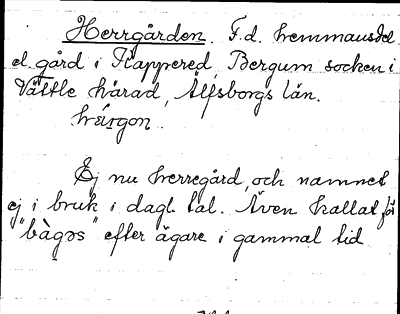 Herrgården. F.d. hemmansdel
el. gård i Käppered, Bergum socken i
Vättle härad, Älfsborgs län.
Ej nu herregård, och namnet
ej i bruk i dagl. tal. Även kallat för
"bàgəs" efter ägare i gammal tid